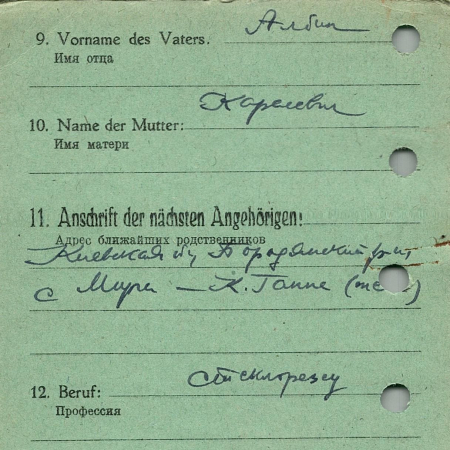 9. Vorname des Vaters. Альбин
Имя отца
Каралевич
10. Name der Mutter:
Имя матери
11. Anschrift der nächsten Angehörigen:
Адрес ближайших родственников
Киевская Бородянский
с Мира - К. Ганне
12. Beruf: стеклорезу
Профессия